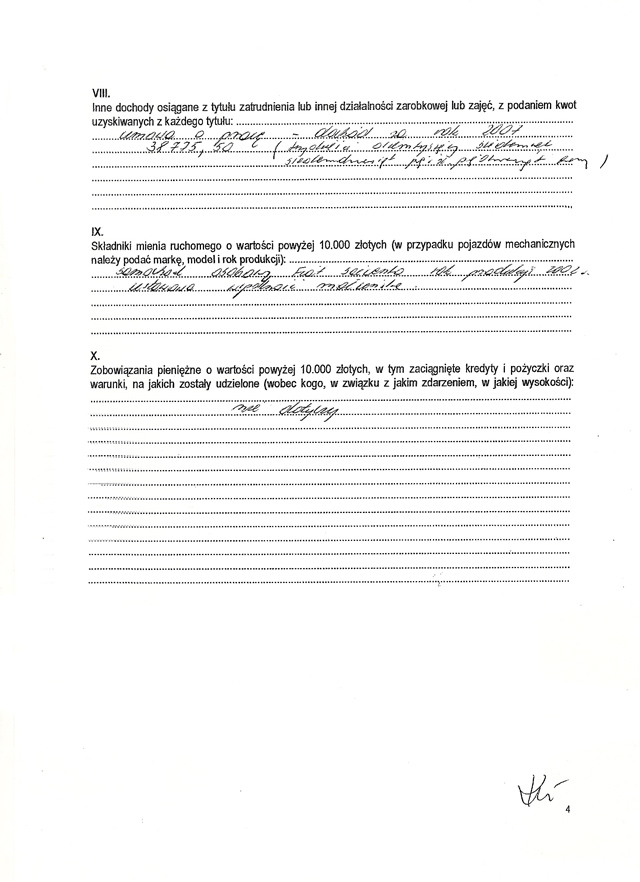 VIII.
Inne dochody osiągane z tytułu zatrudnienia lub innej działalności zarobkowej lub zajęć, z podaniem kwot
uzyskiwanych z każdego tytułu:
umowa o pracę - dochód za rok 2007
38 775, 50 ( trzydzieści osiem tysięcy siedemset
siedemdziesiąt pięć zł pięćdziesiąt )
IX.
Składniki mienia ruchomego o wartości powyżej 10.000 złotych (w przypadku pojazdów mechanicznych
należy podać markę, model i rok produkcji):
samochód osobowy Fiat seicento rok produkcji
wspólność małżeńska
X.
Zobowiązania pieniężne o wartości powyżej 10.000 złotych, w tym zaciągnięte kredyty i pożyczki oraz
warunki, na jakich zostały udzielone (wobec kogo, w związku z jakim zdarzeniem, w jakiej wysokości):
nie dotyczy
4